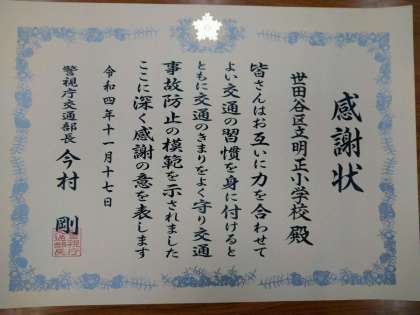 感謝状
世田谷区立明正小学校 殿
皆さんはお互いに力を合わせて
よい交通の習慣を身に付けると
ともに交通のきまりをよく守り交通
事故防止の模範を示されました
ここに深く感謝の意を表します
令和四年十一月十七日
警視庁交通部長 今村 剛